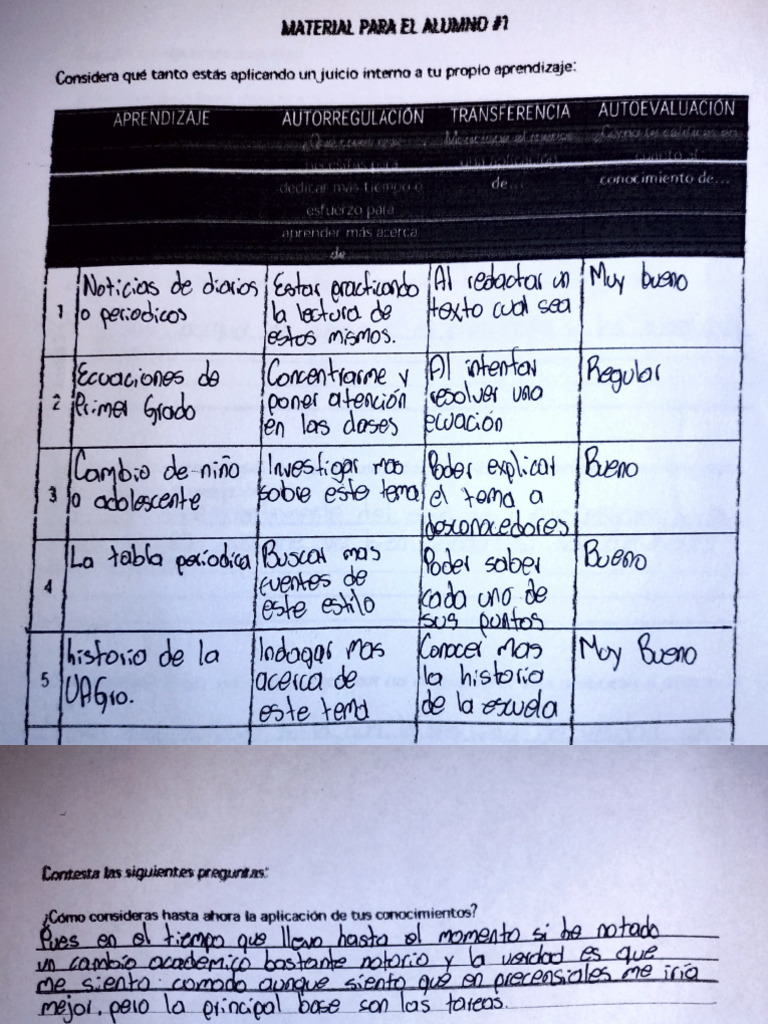 MATERIAL PARA EL ALUMNO #1
Considera qué tanto estás aplicando un juicio interno a tu propio aprendizaje:
APRENDIZAJE AUTORREGULACIÓN TRANSFERENCIA AUTOEVALUACIÓN
dedicar más tiempo o
esfuerzo para
aprender más acerca
de
de...
conocimiento de...
1 Noticias de diarios
o periodicos
Estar practicando
la lectura de
estos mismos.
Al redactar un
texto cual sea
Muy bueno
2 Ecuaciones de
Primer Grado
Concentrarme y
poner atención
en las clases
Al intentar
resolver una
ecuación
Regular
3 Cambio de niño
a adolescente
Investigar mas
sobre este tema
Poder explicar
el tema a
desconocedores
Bueno
4 La tabla periodica
Buscar mas
fuentes de
este estilo
Poder saber
cada uno de
sus puntos
Bueno
5 historia de la
UAGro.
Indagar mas
acerca de
este tema
Conocer mas
la historia
de la escuela
Muy Bueno
Contesta las siguientes preguntas:
¿Cómo consideras hasta ahora la aplicación de tus conocimientos?
Pues en el tiempo que llevo hasta el momento si he notado
un cambio academico bastante notorio y la verdad es que
me siento comodo aunque siento que en precensiales me iria
mejor, pero la principal base son las tareas.